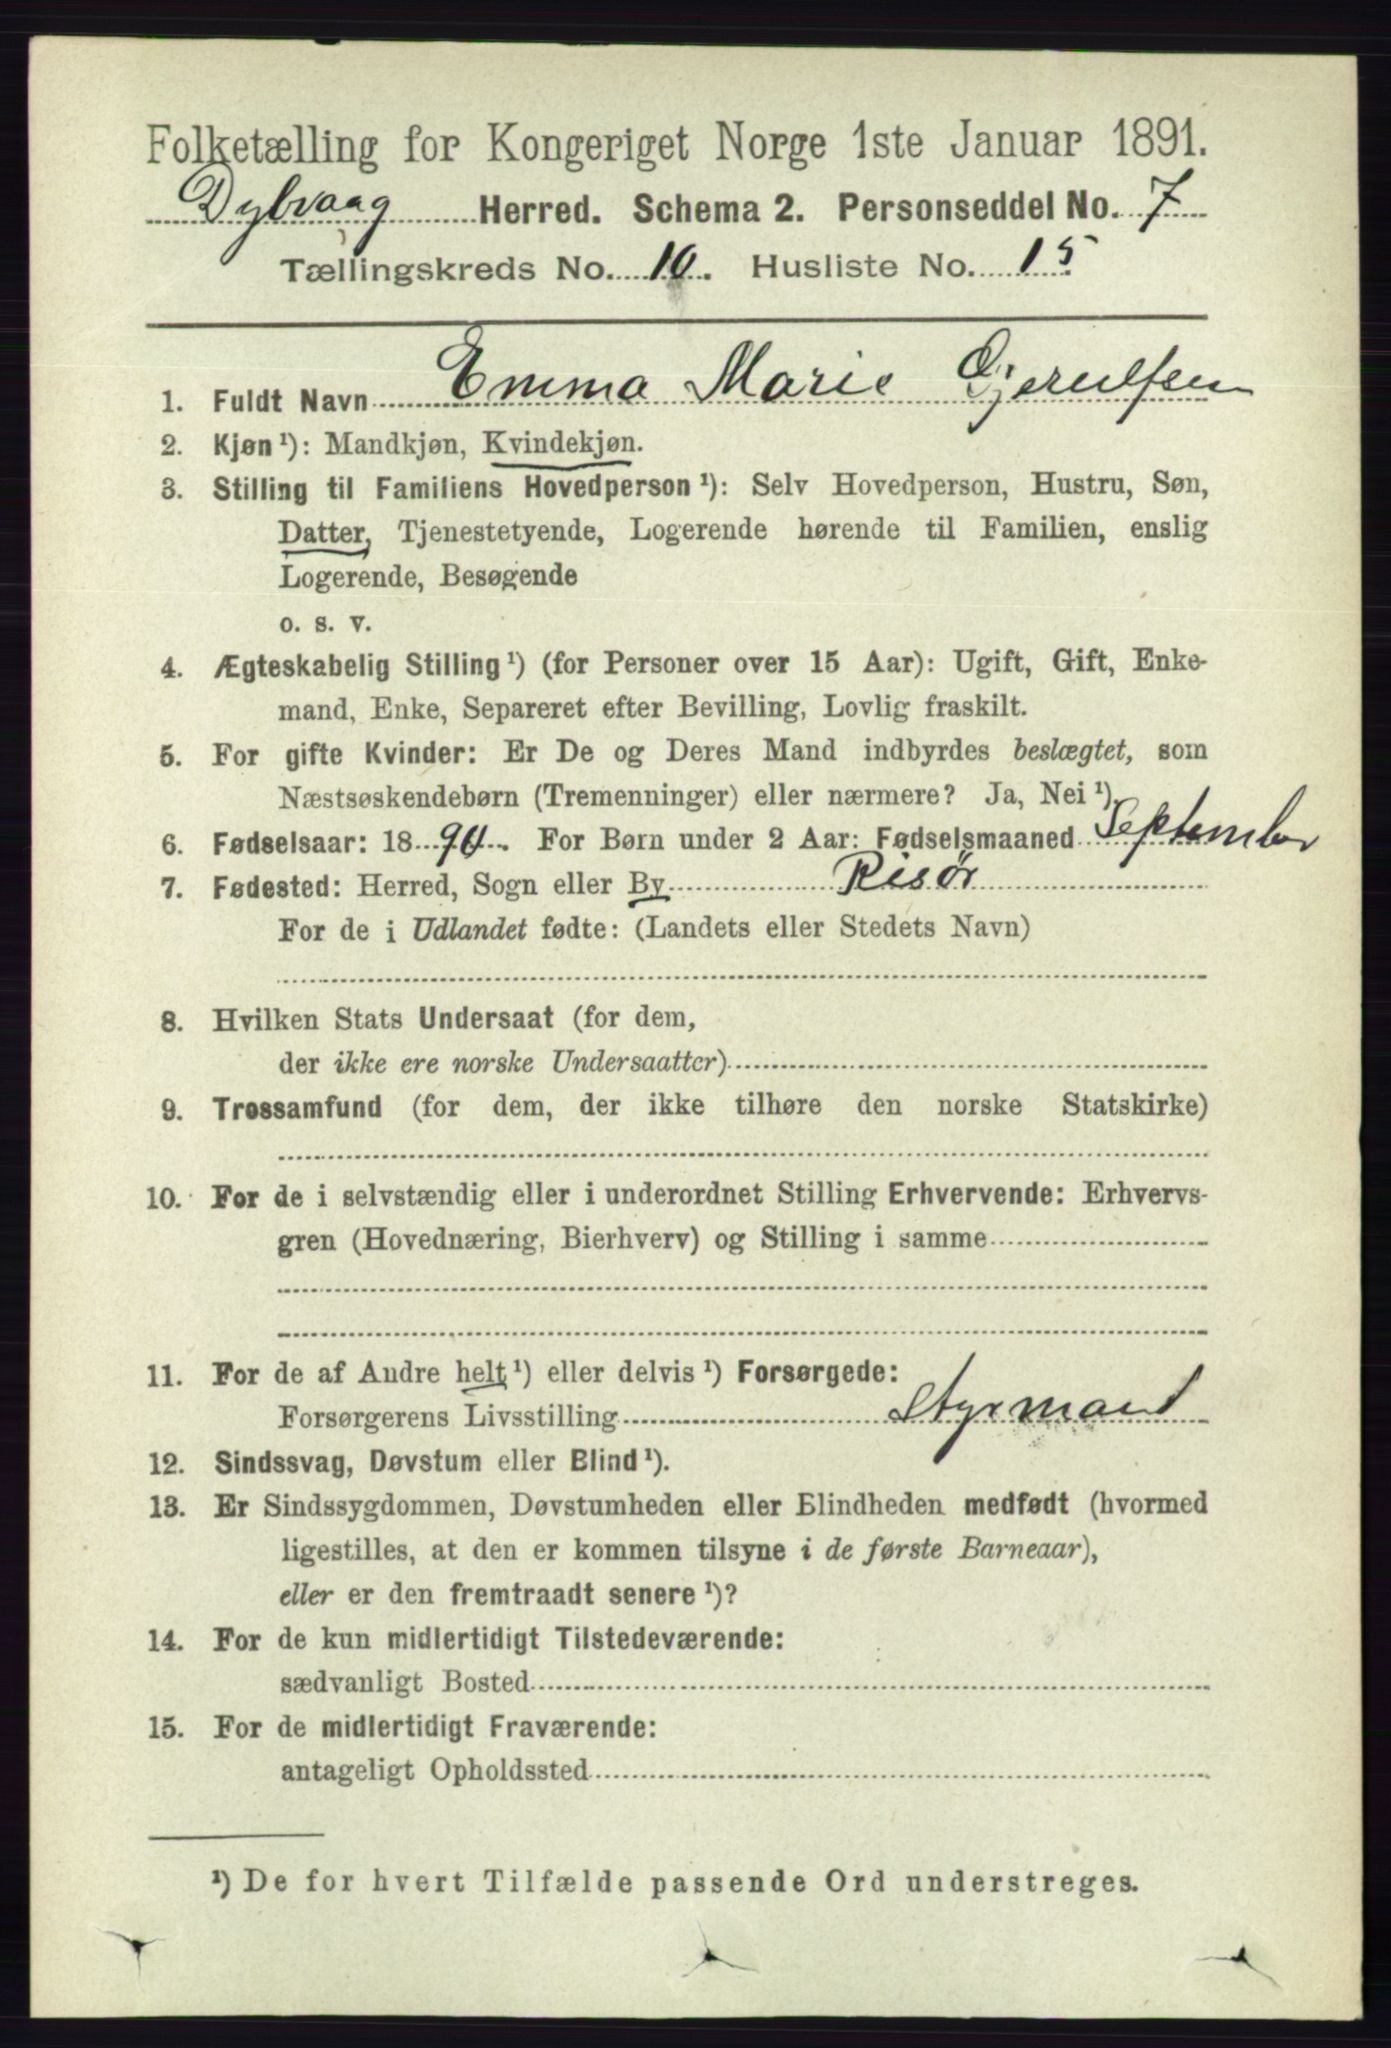 Folketælling for Kongeriget Norge 1ste Januar 1891.
Dybvaag Herred. Schema 2. Personseddel No. 7
Tællingskreds No. 10. Husliste No. 15
1. Fuldt Navn Emma Marie Gjerulfsen
2. Kjøn¹): Mandkjøn, Kvindekjøn.
3. Stilling til Familiens Hovedperson¹): Selv Hovedperson, Hustru, Søn,
Datter, Tjenestetyende, Logerende hørende til Familien, enslig
Logerende, Besøgende
o. s. v.
4. Ægteskabelig Stilling¹) (for Personer over 15 Aar): Ugift, Gift, Enke-
mand, Enke, Separeret efter Bevilling, Lovlig fraskilt.
5. For gifte Kvinder: Er De og Deres Mand indbyrdes beslægtet, som
Næstsøskendebørn (Tremenninger) eller nærmere? Ja, Nei¹).
6. Fødselsaar: 1890. For Børn under 2 Aar: Fødselsmaaned September
7. Fødested: Herred, Sogn eller By Risör
For de i Udlandet fødte: (Landets eller Stedets Navn)
8. Hvilken Stats Undersaat (for dem,
der ikke ere norske Undersaatter)
9. Trossamfund (for dem, der ikke tilhøre den norske Statskirke)
10. For de i selvstændig eller i underordnet Stilling Erhvervende: Erhvervs-
gren (Hovednæring, Bierhverv) og Stilling i samme
11. For de af Andre helt¹) eller delvis¹) Forsørgede:
Forsørgerens Livsstilling Styrmand
12. Sindssvag, Døvstum eller Blind¹).
13. Er Sindssygdommen, Døvstumheden eller Blindheden medfødt (hvormed
ligestilles, at den er kommen tilsyne i de første Barneaar),
eller er den fremtraadt senere¹)?
14. For de kun midlertidigt Tilstedeværende:
sædvanligt Bosted
15. For de midlertidigt Fraværende:
antageligt Opholdssted
¹) De for hvert Tilfælde passende Ord understreges.